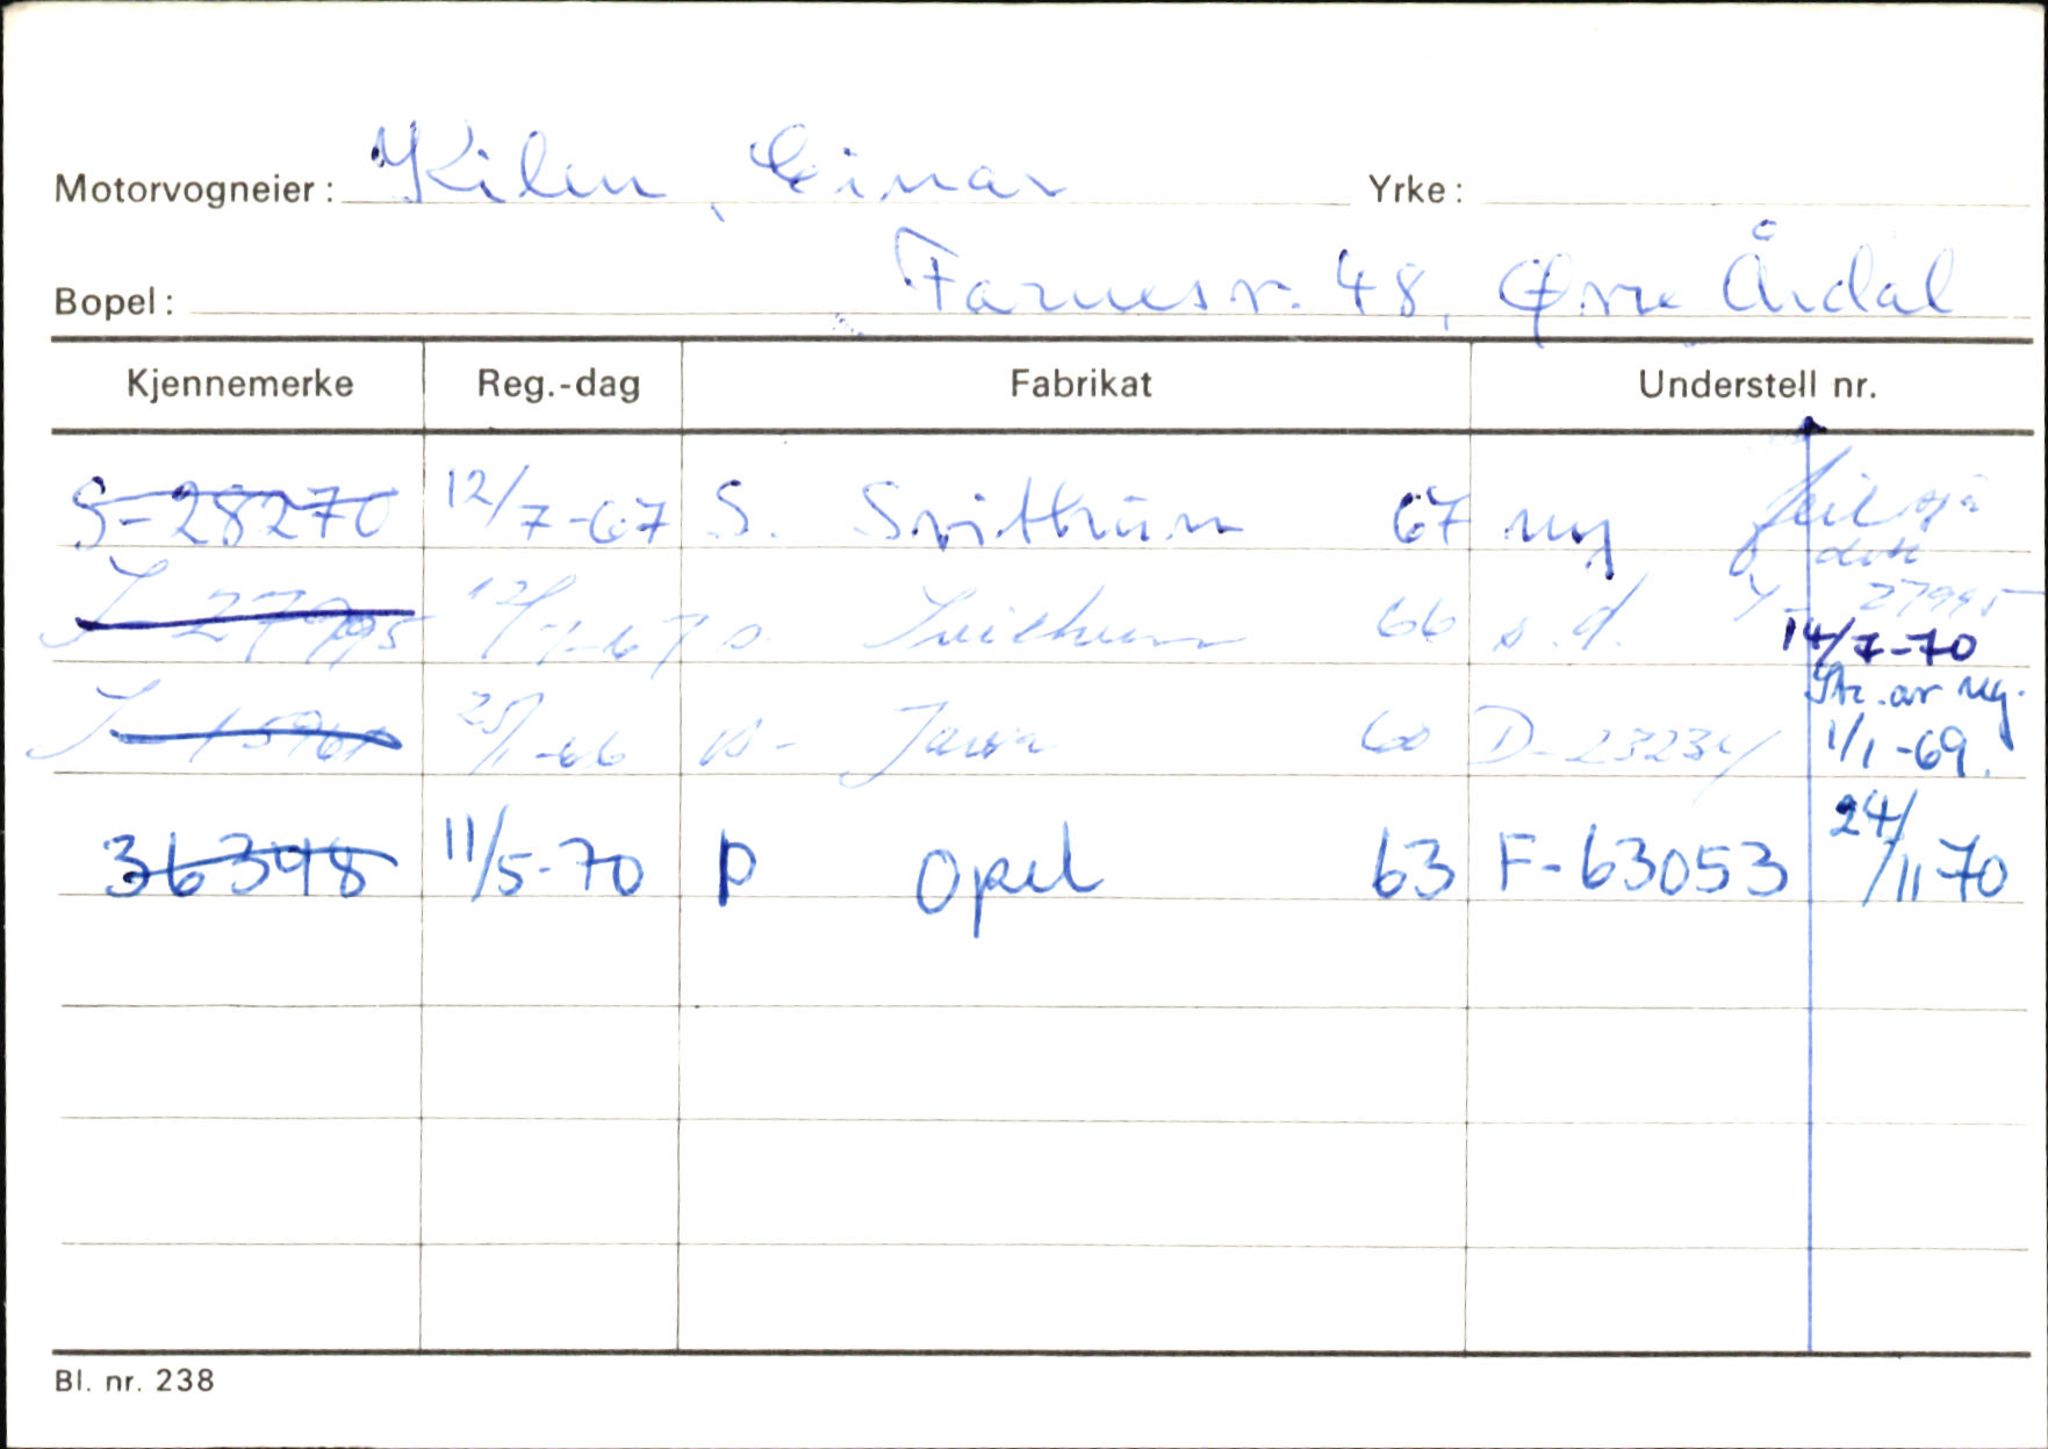 Motorvogneier: Kilen, Einar Yrke:
Bopel: Farnesv. 48, Øvre Årdal
Kjennemerke Reg.-dag Fabrikat Understell nr.
S-28270 12/7-67 S. Svithun 67 ny
S-27995 12/7-67 s. Svithun 66 s.d. 14/7-70
S-15961 25/1-66 s- Jawa 60 D-23234 Str. av reg. 1/1-69.
36398 11/5-70 p Opel 63 F-63053 24/11 70
Bl. nr. 238